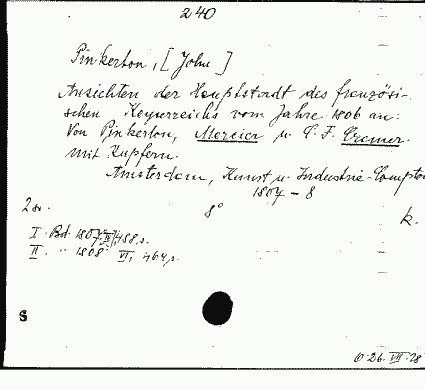 240
Pinkerton, [John]
Ansichten der Hauptstadt des französi-
schen Keyserreichs vom Jahre 1806 an.
Von Pinkerton, Mercier u. C. F. Cramer.
mit Kupfern.
Amsterdam, Kunst u. Industrie-Comptoi
1807-8
2 8° k.
I Bd. 1807. 488 s.
II " 1808 VI, 464 s.
S
26.VII.28